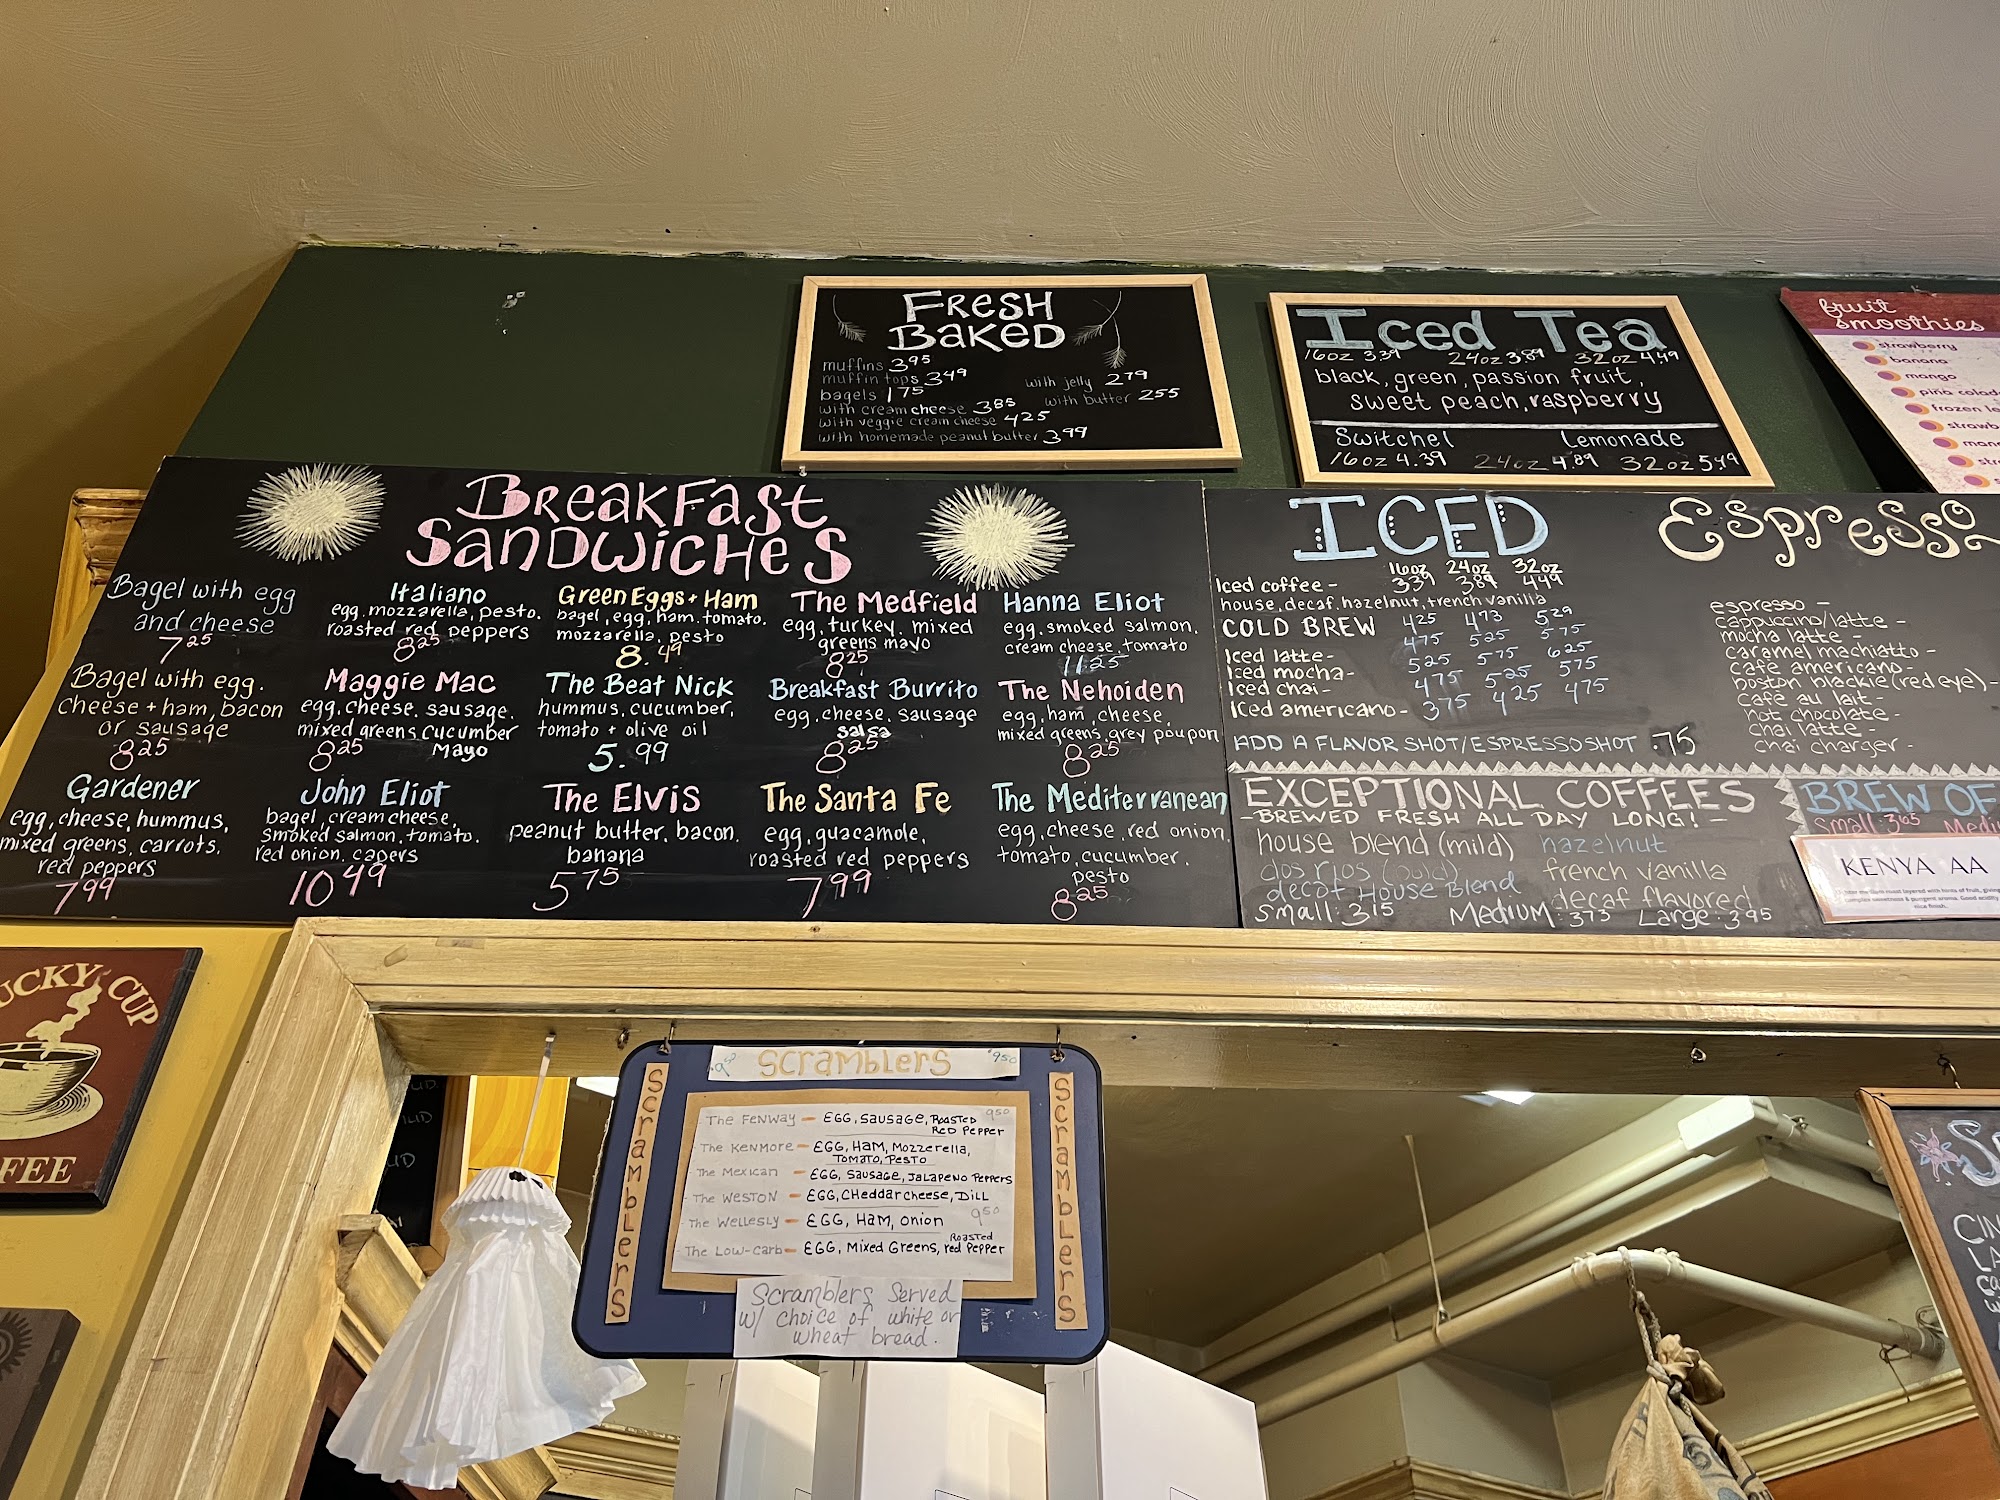 FRESH
BAKED
muffins 3.95
muffin tops 3.49
bagels 1.75
with cream cheese 3.85
with veggie cream cheese 4.25
with homemade peanut butter 3.99
with jelly 2.79
with butter 2.55
Iced Tea
16oz 3.39 24oz 3.89 32oz 4.49
black, green, passion fruit,
sweet peach, raspberry
Switchel Lemonade
16oz 4.39 24oz 4.89 32oz 5.49
fruit
smoothies
strawberry
banana
mango
piña colada
BREAKFAST
SANDWICHES
Bagel with egg
and cheese
7.25
Italiano
egg, mozzarella, pesto,
roasted red peppers
8.25
Green Eggs + Ham
bagel, egg, ham, tomato,
mozzarella, pesto
8.49
The Medfield
egg, turkey, mixed
greens mayo
8.25
Hanna Eliot
egg, smoked salmon,
cream cheese, tomato
11.25
Bagel with egg,
cheese + ham, bacon
or sausage
8.25
Maggie Mac
egg, cheese, sausage,
mixed greens, cucumber
8.25 Mayo
The Beat Nick
hummus, cucumber,
tomato + olive oil
5.99
Breakfast Burrito
egg, cheese, sausage
salsa
8.25
The Nehoiden
egg, ham, cheese,
mixed greens, grey poupon
8.25
Gardener
egg, cheese, hummus,
mixed greens, carrots,
red peppers
7.99
John Eliot
bagel, cream cheese,
smoked salmon, tomato,
red onion, capers
10.49
The Elvis
peanut butter, bacon,
banana
5.75
The Santa Fe
egg, guacamole,
roasted red peppers
7.99
The Mediterranean
egg, cheese, red onion,
tomato, cucumber,
pesto
8.25
ICED
16oz 24oz 32oz
Iced coffee - 3.39 3.89 4.49
house, decaf, hazelnut, french vanilla
COLD BREW 4.25 4.73 5.29
Iced latte - 4.75 5.25 5.75
Iced mocha - 5.25 5.75 6.25
Iced chai - 4.75 5.25 5.75
Iced americano - 3.75 4.25 4.75
ADD A FLAVOR SHOT/ESPRESSO SHOT .75
Espresso
espresso -
cappuccino/latte -
mocha latte -
caramel machiatto -
cafe americano -
boston blackie (red eye) -
cafe au lait -
hot chocolate -
chai latte -
chai charger -
EXCEPTIONAL COFFEES
- BREWED FRESH ALL DAY LONG! -
house blend (mild) hazelnut
dos rios (bold) french vanilla
decaf House Blend decaf flavored
Small: 3.15 Medium: 3.73 Large: 3.95
BREW OF
Small: 3.65
KENYA AA
UCKY CUP
FEE
Scramblers
9.50
Scramblers
Scramblers
The Fenway - EGG, Sausage, Roasted Red Pepper 9.50
The Kenmore - EGG, Ham, Mozzerella,
Tomato, Pesto
The Mexican - EGG, Sausage, Jalapeno Peppers
The Weston - EGG, Cheddar cheese, Dill
The Wellesly - EGG, Ham, Onion 9.50
The Low-Carb - EGG, Mixed Greens, Roasted red Pepper
Scramblers Served
w/ choice of white or
wheat bread.